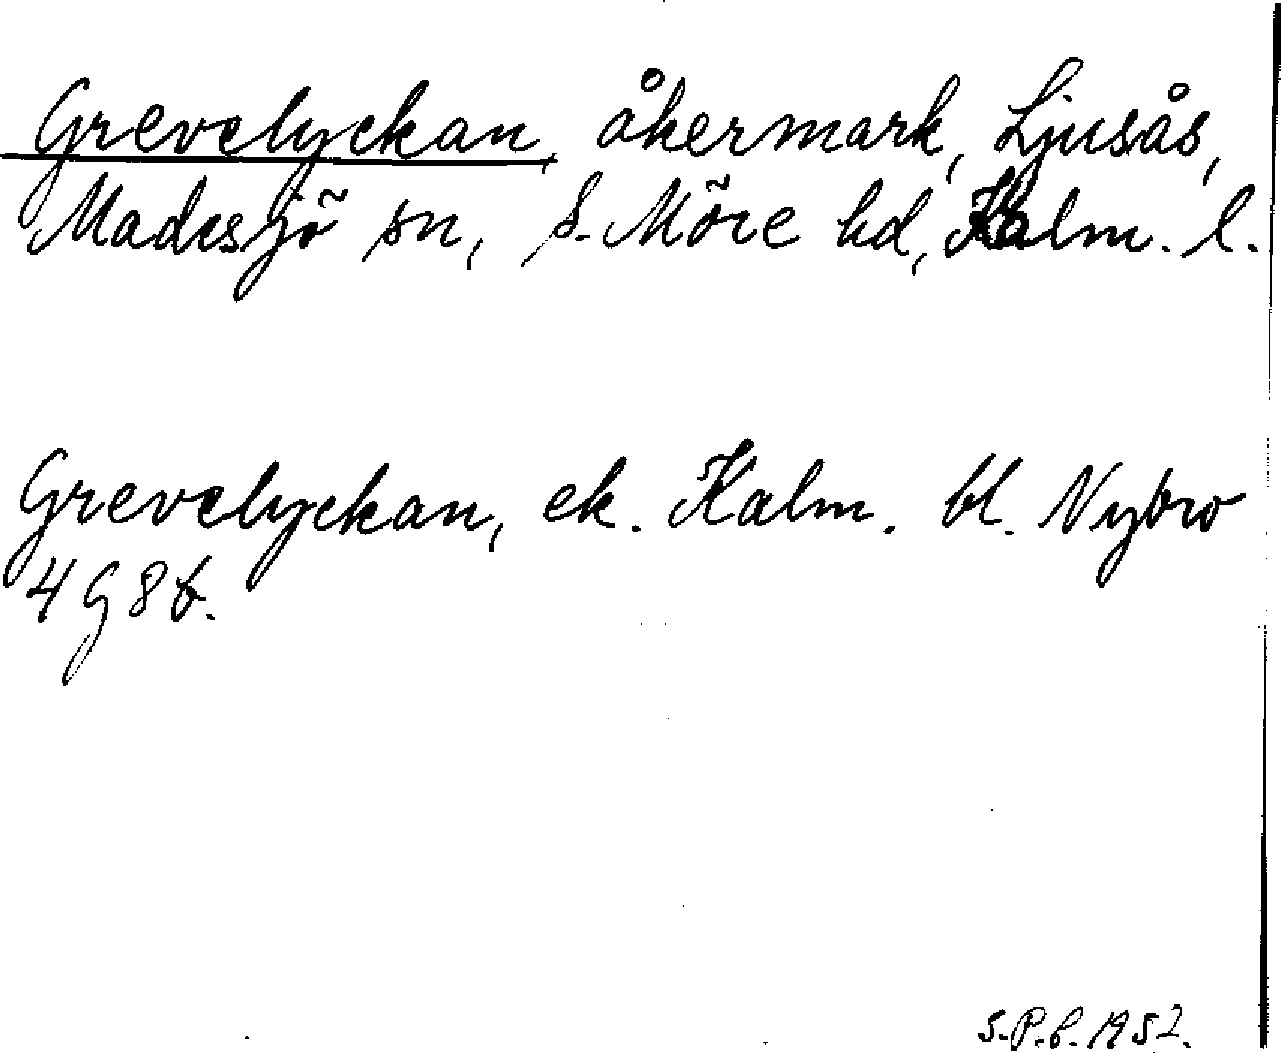 Grevelyckan, åkermark, Ljusås,
Madesjö sn, S. Möre hd, Kalm. l.
Grevelyckan, ek. Kalm. bl. Nybro
4 G 8 b.
S.P.b. 1952.